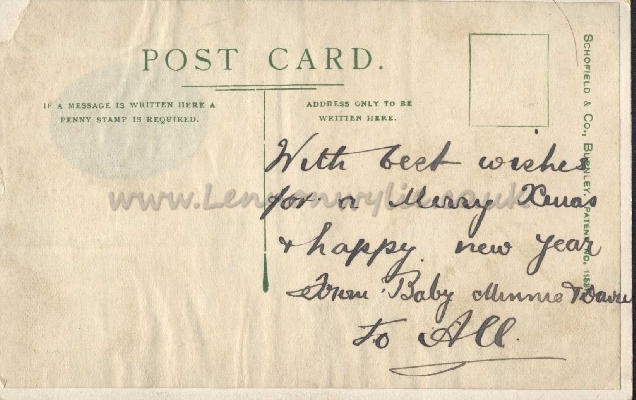 POST CARD.
IF A MESSAGE IS WRITTEN HERE A
PENNY STAMP IS REQUIRED.
ADDRESS ONLY TO BE
WRITTEN HERE.
With best wishes
for a Merry Xmas
& happy new year
From Baby Minnie
To All
SCHOFIELD & CO., BURNLEY. PATENT NO.